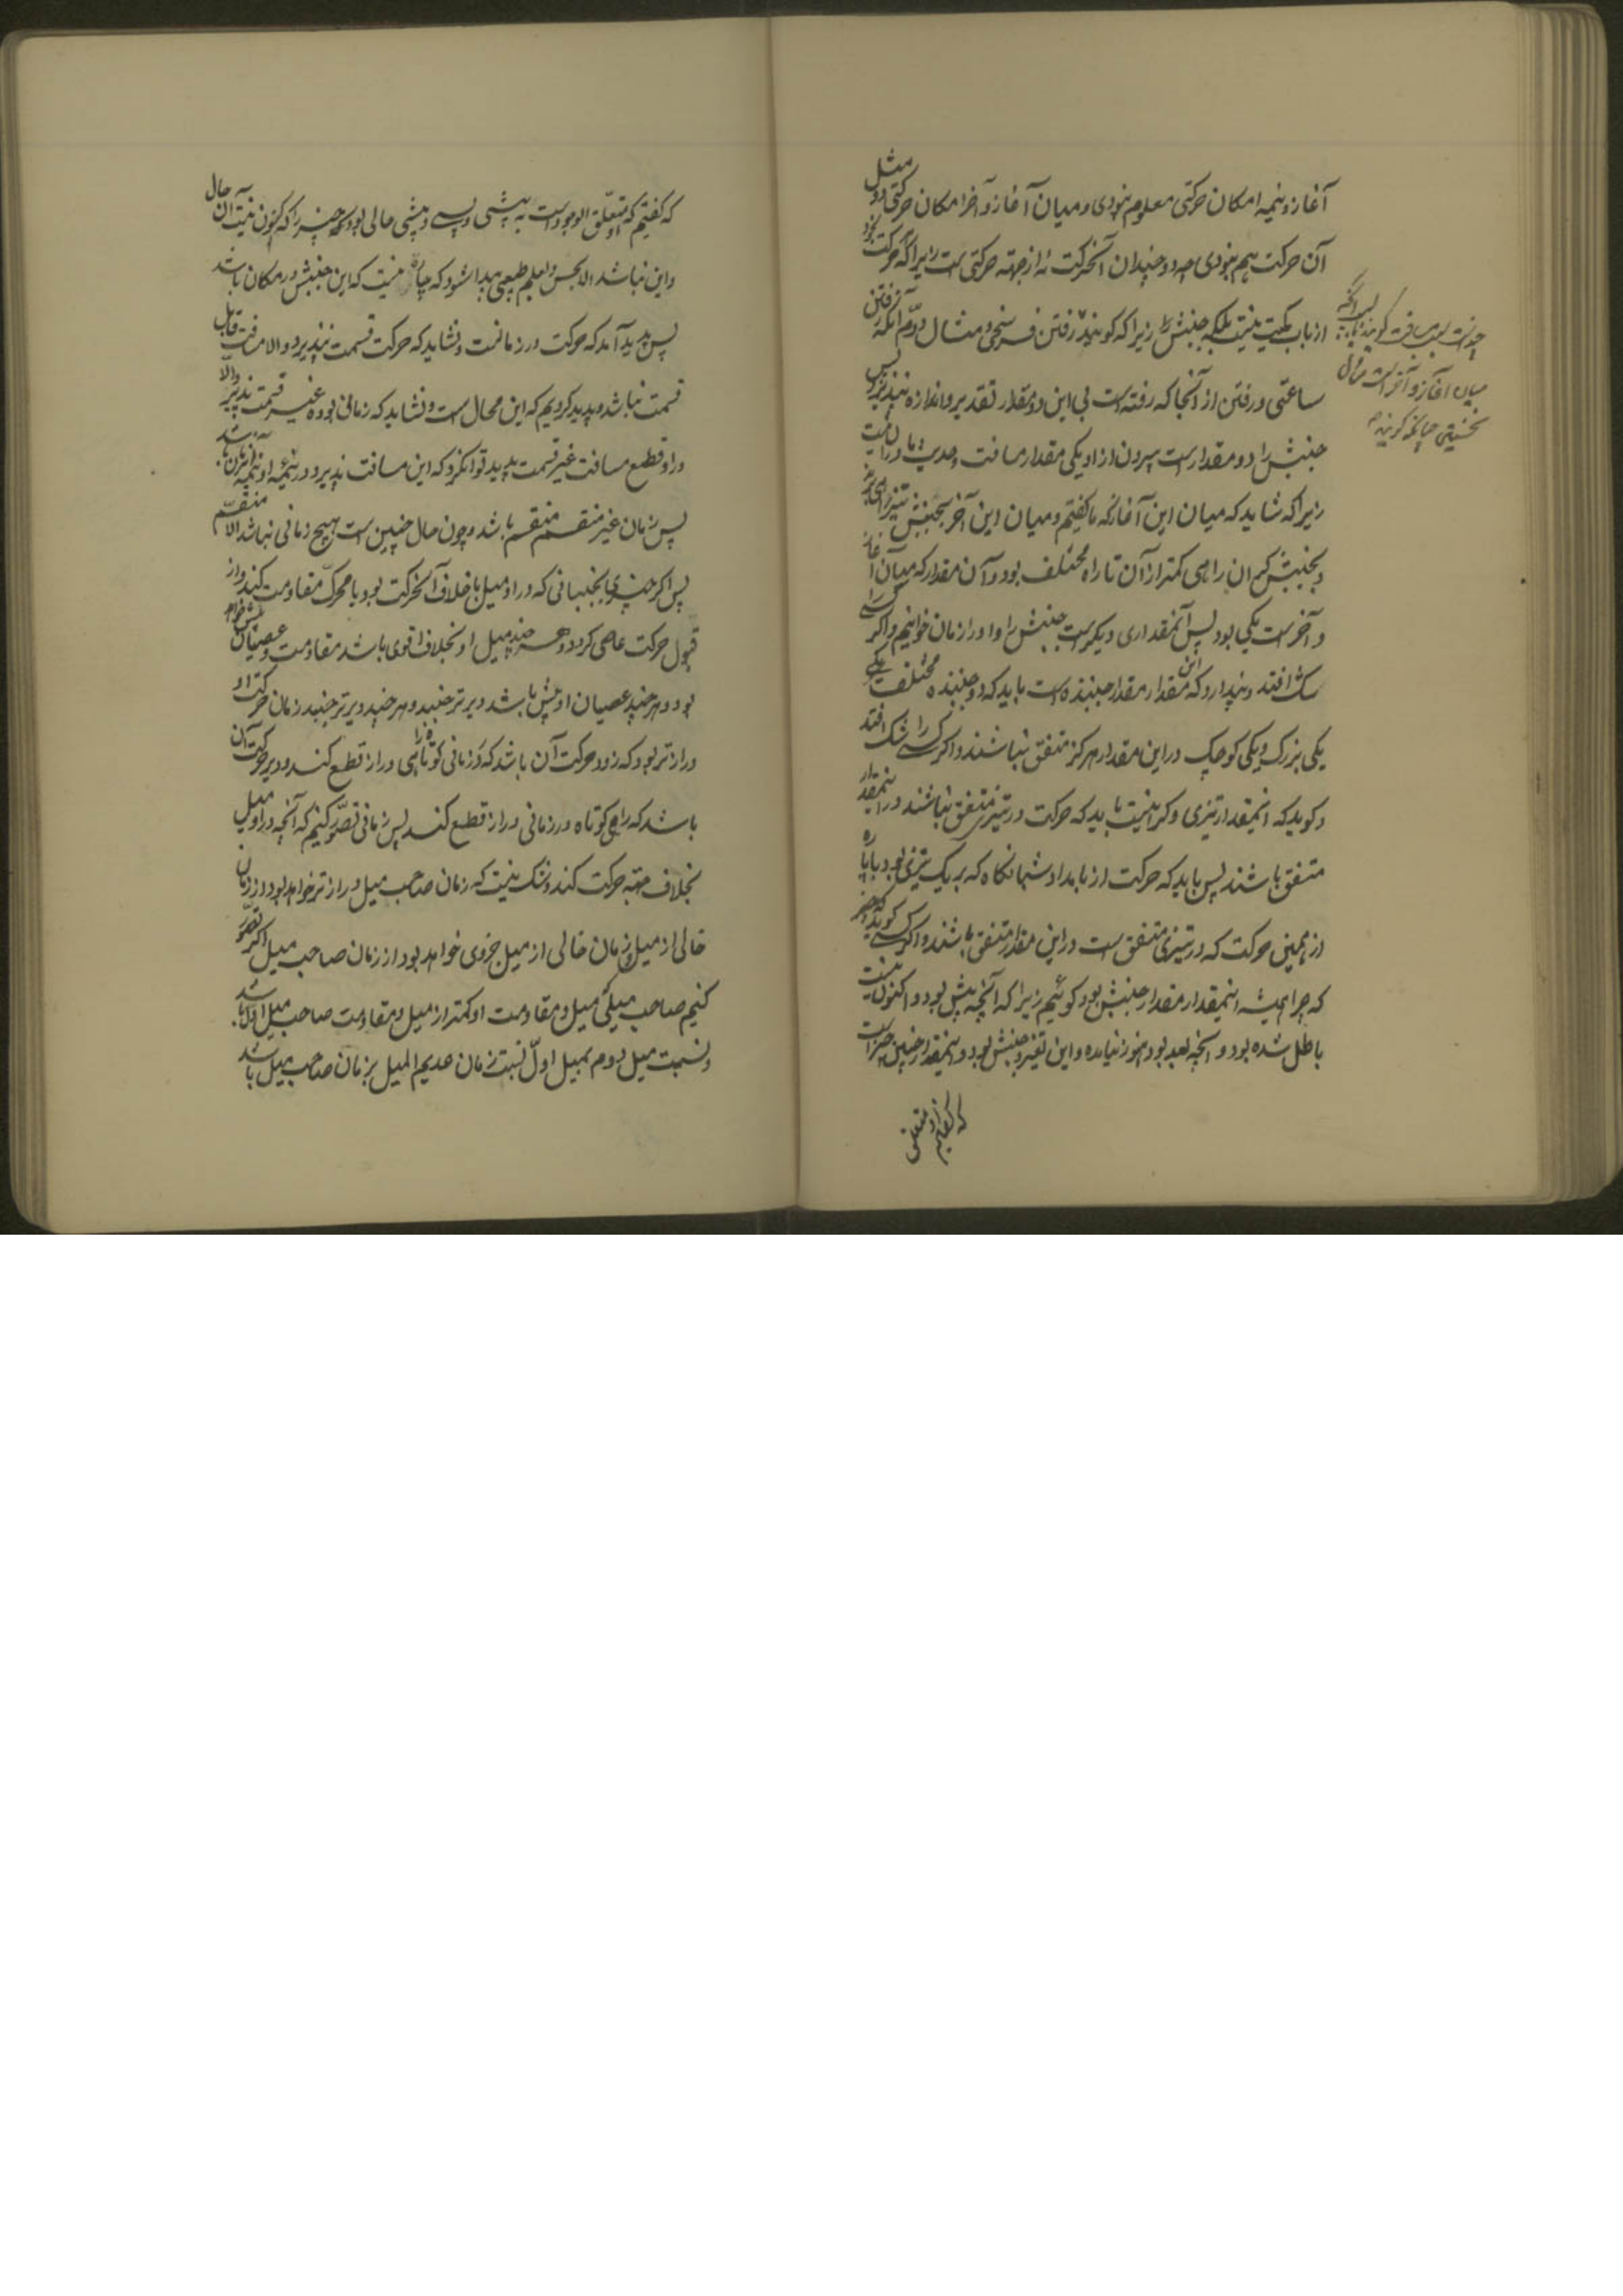 آغاز و نیمه امکان حرکتی معلوم نبودی و میان آغاز و آخر امکان حرکتی دو مثل
آن حرکت هم نبودی چه دو چندان آنحرکت نه از جهته حرکتی است زیرا که حرکت بخود
از باب کمیت نیست بلکه جنبش را زیرا که گویند رفتن فرسنخی و مثال دوم آنکه رفتن
ساعتی و رفتن از آنجا که رفته است بی این دو مقدار تقدیر و اندازه نپذیرد پس
جنبش را دو مقدار است بیرون از او یکی مقدار مسافت
زیرا که شاید که میان این آغاز که ما گفتیم و میان این آخر بجنبش تیز راهی
و بجنبش گران راهی کمتر از آن تا راه مختلف بود و آن مقدار که میان آغاز
و آخر است یکی بود پس آنمقداری دیگر است جنبش را و او را زمان خوانیم و اگر کسی را
شک افتد و پندارد که این مقدار مقدار جنبنده است باید که دو جنبنده مختلف یکی
یکی بزرگ و یکی کوچک در این مقدار هرگز متفق نباشند و اگر کسی را شک افتد
و گوید که اینمقدار تیزی و گرانیست باید که حرکت در تیزی متفق نباشند در اینمقدار
متفق باشند پس باید که حرکت از بامداد و شبانگاه که بر یک تیزی بود با پاره
از همین حرکت که در تیزی متفق است در این مقدار متفق باشند و اگر کسی گوید که
که چرا همیشه اینمقدار مقدار جنبش بود گوئیم زیرا که آنچه پیش بود و اکنون نیست
باطل شده بود و آنچه بعد بود هنوز نیامده و این تغیر و جنبش بود و اینمقدار چنین چیز است
که گفتیم او متعلق
میان آغاز و آخر است
که گفتیم که متعلق الوجود است به پیشی و پسی و پیشی حالی بود که چیز را که کنون نیست آن حال
و این نباشد الا بجنبش و بعلم طبیعی پیدا شود که چاره نیست که این جنبش در مکان باشد
پس پدید آمد که حرکت در زمانست و نشاید که حرکت قسمت نپذیرد والا مسافت قابل
قسمت نباشد و پدید کردیم که این محال است و نشاید که زمانی بود غیر قسمت پذیر والا
در او قطع مسافت غیر قسمت پدید توانکرد که این مسافت پذیرد و در نیمه او نیمه زمان باشد
پس زمان غیر منقسم منقسم باشد و چون حال چنین است هیچ زمانی نباشد الا منقسم
پس اگر چیزی بجنبانی که در او میل با خلاف آنحرکت بود با محرک مقاومت کند و از
قبول حرکت عاصی گردد و هر چند میل او بخلاف اقوی باشد مقاومت و عصیان بیش خواهد
بود و هر چند عصیان او بیش باشد دیرتر جنبد و هر چند دیرتر جنبد زمان حرکت او
درازتر بود که زود حرکت آن باشد که در زمانی کوتاه راهی دراز قطع کند و دیر حرکت آن
باشد که راهی کوتاه در زمانی دراز قطع کند پس زمانی تصور کنیم که آنچه در او میل
بخلاف جهته حرکت کند و شک نیست که زمان صاحب میل درازتر خواهد بود از زمان
خالی از میل و زمان خالی از میل جزوی خواهد بود از زمان صاحب میل اگر تصور
کنیم صاحب میلی که میل و مقاومت او کمتر از میل و مقاومت صاحب میل اول باشد
و نسبت میل دوم بمیل اول نسبت زمان عدیم المیل بزمان صاحب میل باشد